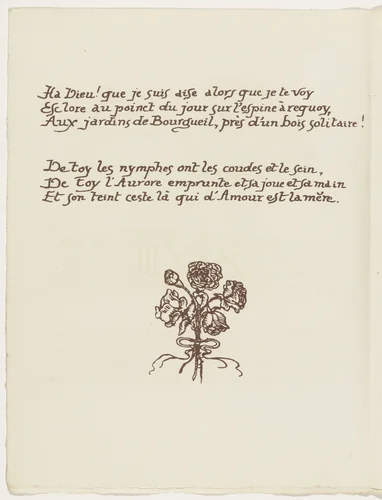 Ha Dieu! que je suis aise alors que je te voy
Esclore au poinct du jour sur l'espine à requoy,
Aux jardins de Bourgueil, près d'un bois solitaire!
De toy les nymphes ont les coudes et le sein,
De toy l'Aurore emprunte et sa joue et sa main
Et son teint ceste là qui d'Amour est la mère.